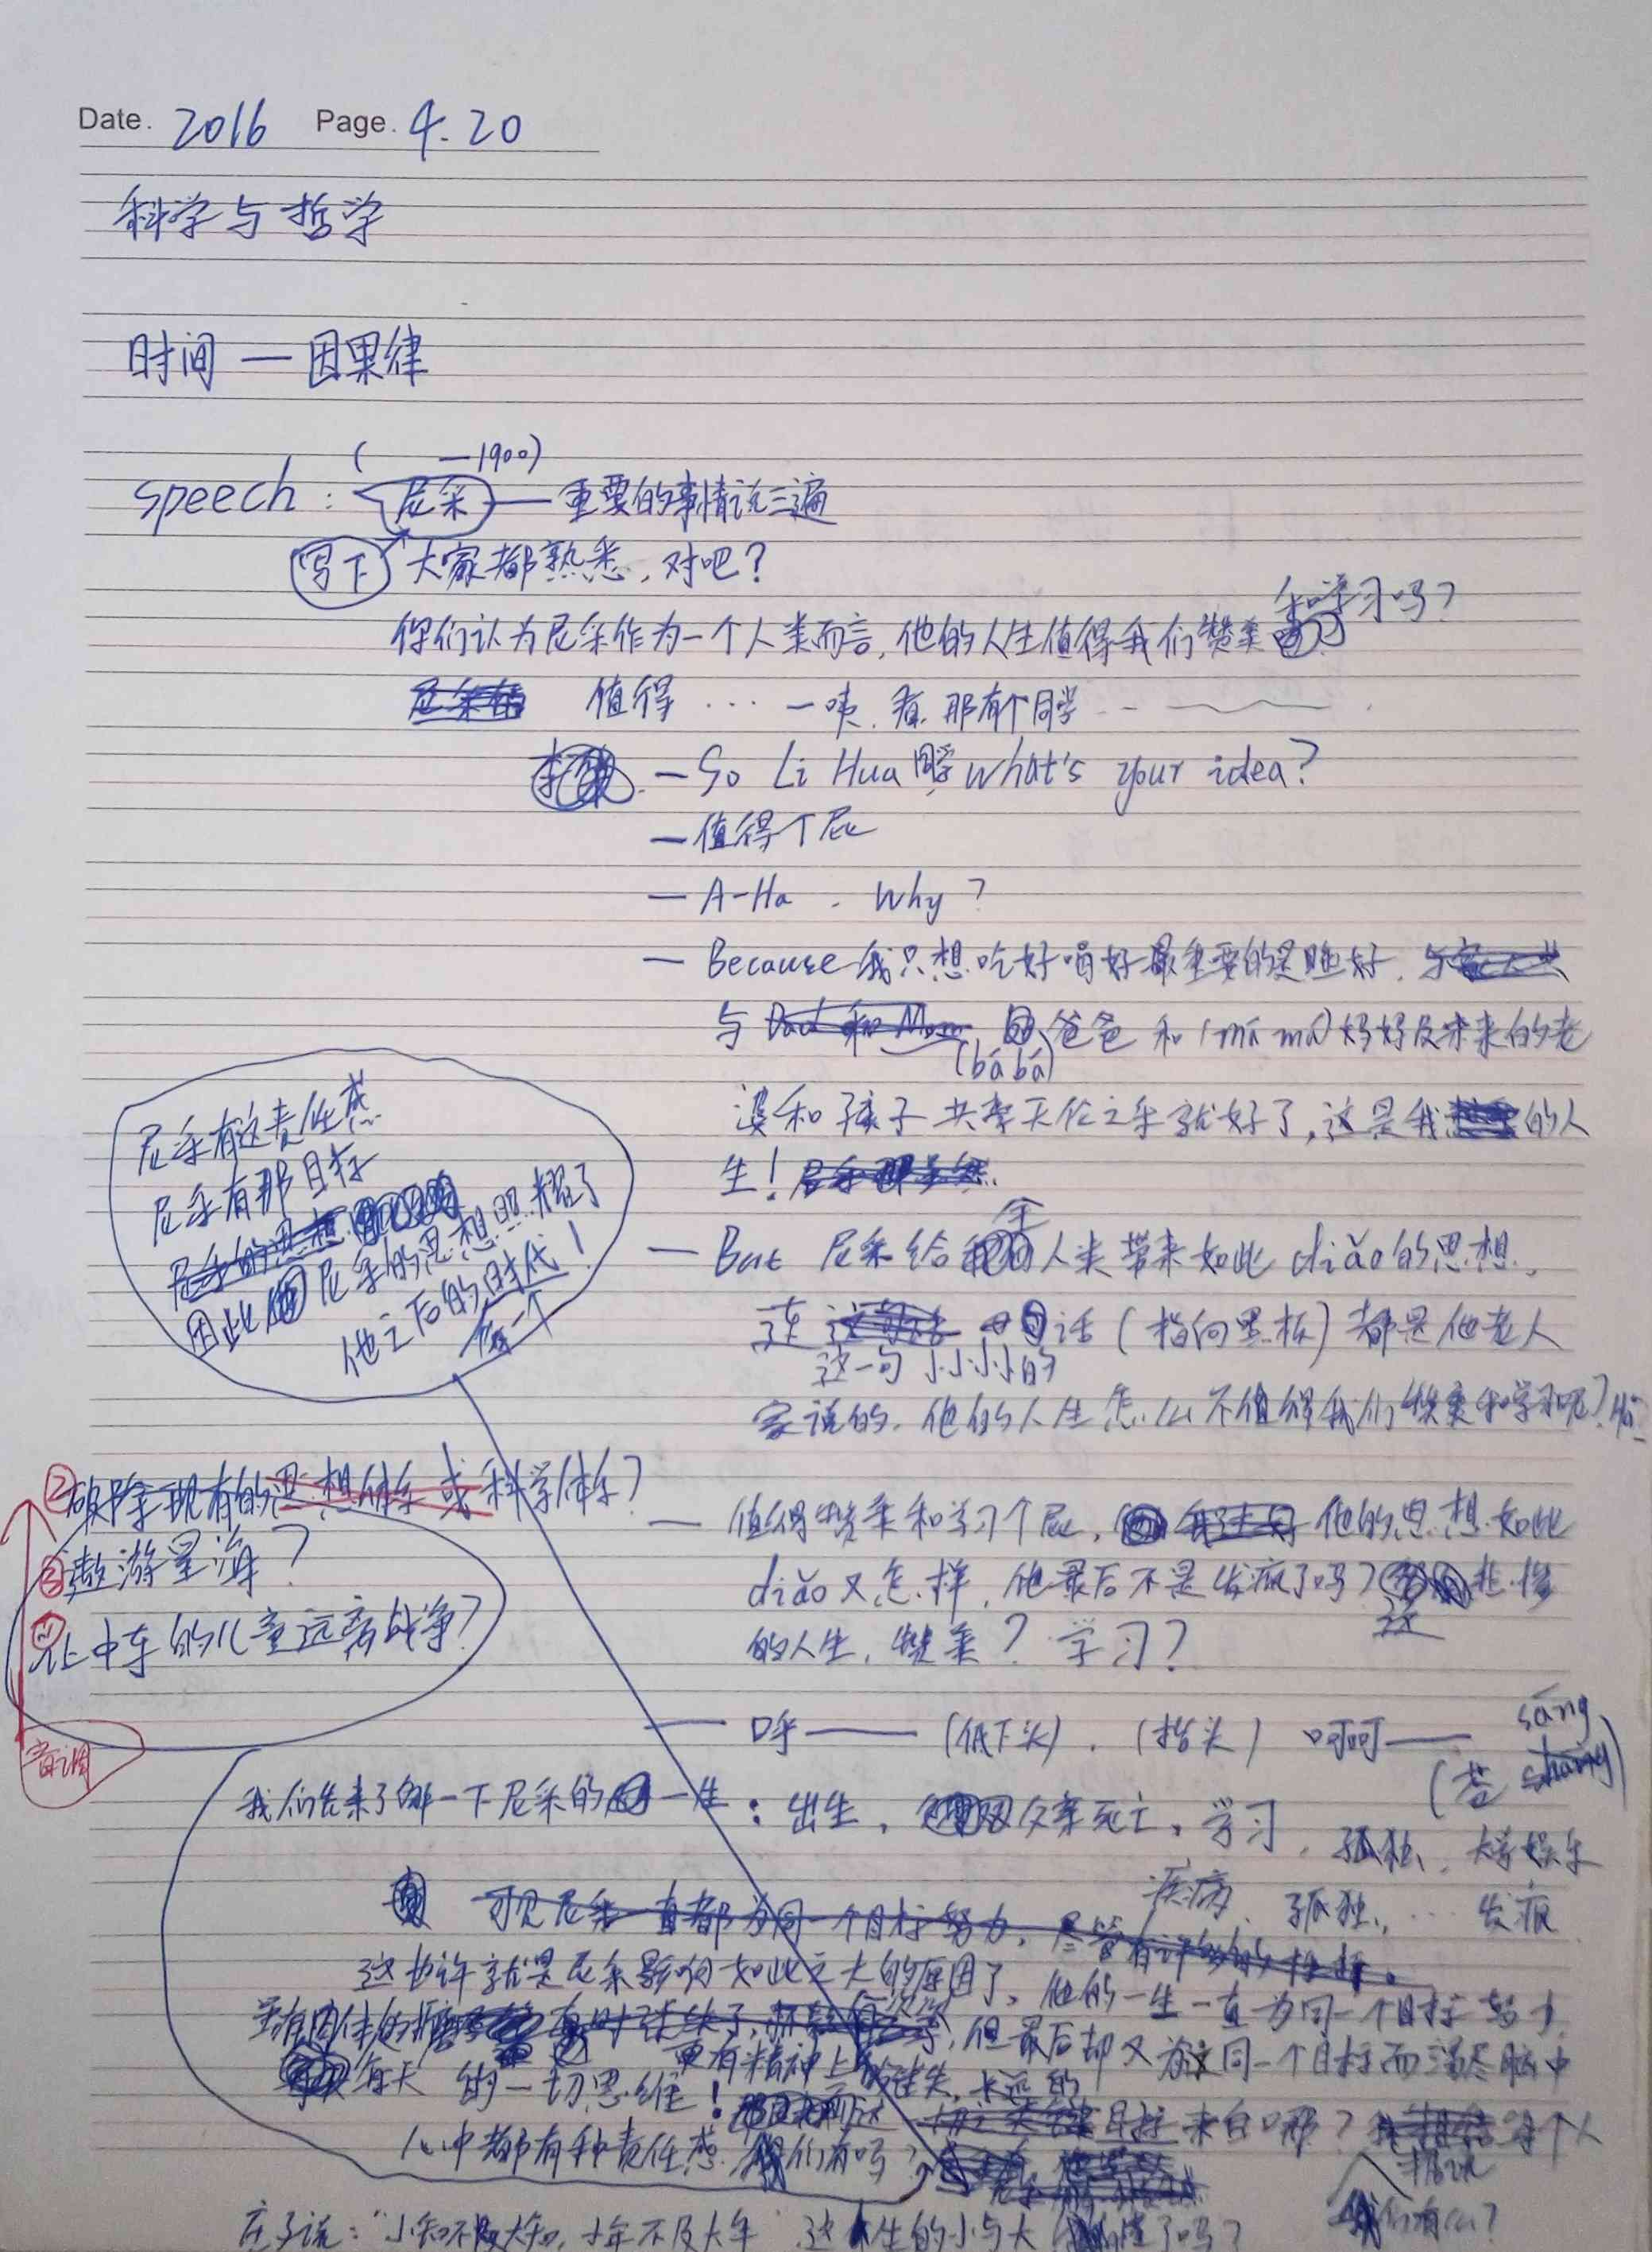 Date. 2016 Page. 4.20
科学与哲学
时间 — 因果律
( —1900)
speech: 尼采 — 重要的事情说三遍
写下 大家都熟悉,对吧?
和学习吗?
你们认为尼采作为一个人类而言,他的人生值得我们赞美
值得 ··· 一咦,看,那有个同学
李 — So Li Hua 同学 what's your idea?
— 值得个屁
— A-Ha . Why?
— Because 我只想吃好喝好最重要的是睡好,
与 Dad 和 Mom 爸爸 和 (mā má) 妈妈及未来的老
(bá bá)
婆和孩子共享天伦之乐就好了,这是我的人
生!
全
— But 尼采给人类带来如此 diǎo 的思想,
连 话 (指向黑板) 都是他老人
这一句小小小的
家说的,他的人生怎么不值得我们赞美和学习呢?
— 值得赞美和学习个屁, 他的思想如此
diǎo 又怎样,他最后不是发疯了吗? 悲惨
这
的人生,赞美? 学习?
— 呼 —— (低下头). (抬头) 呵呵 ——
sāng
(苦 shang)
尼采有这责任感
尼采有那目标
尼采的思想
因此 尼采的思想照耀了
他之后的时代!
每一个
②破除现有的思想体系或科学体系?
③遨游星海?
①让中东的儿童远离战争?
音调
我们先来了解一下尼采的一生:出生, 父亲死亡,学习,孤独,大学娱乐
疾病,孤独,··· 发疯
可见尼采一直都为同一个目标努力,尽管有许多的
这也许就是尼采影响如此之大的原因了,他的一生一直为同一个目标努力,
虽有肉体的 ,但最后却又为这同一个目标而 尽脑中
更有精神上的 永远的
每天 的一切思维! 目标来自哪? 每个人
心中都有种责任感, 你们有吗?
庄子说:“小知不及大知,小年不及大年” 这人生的小与大 了吗?